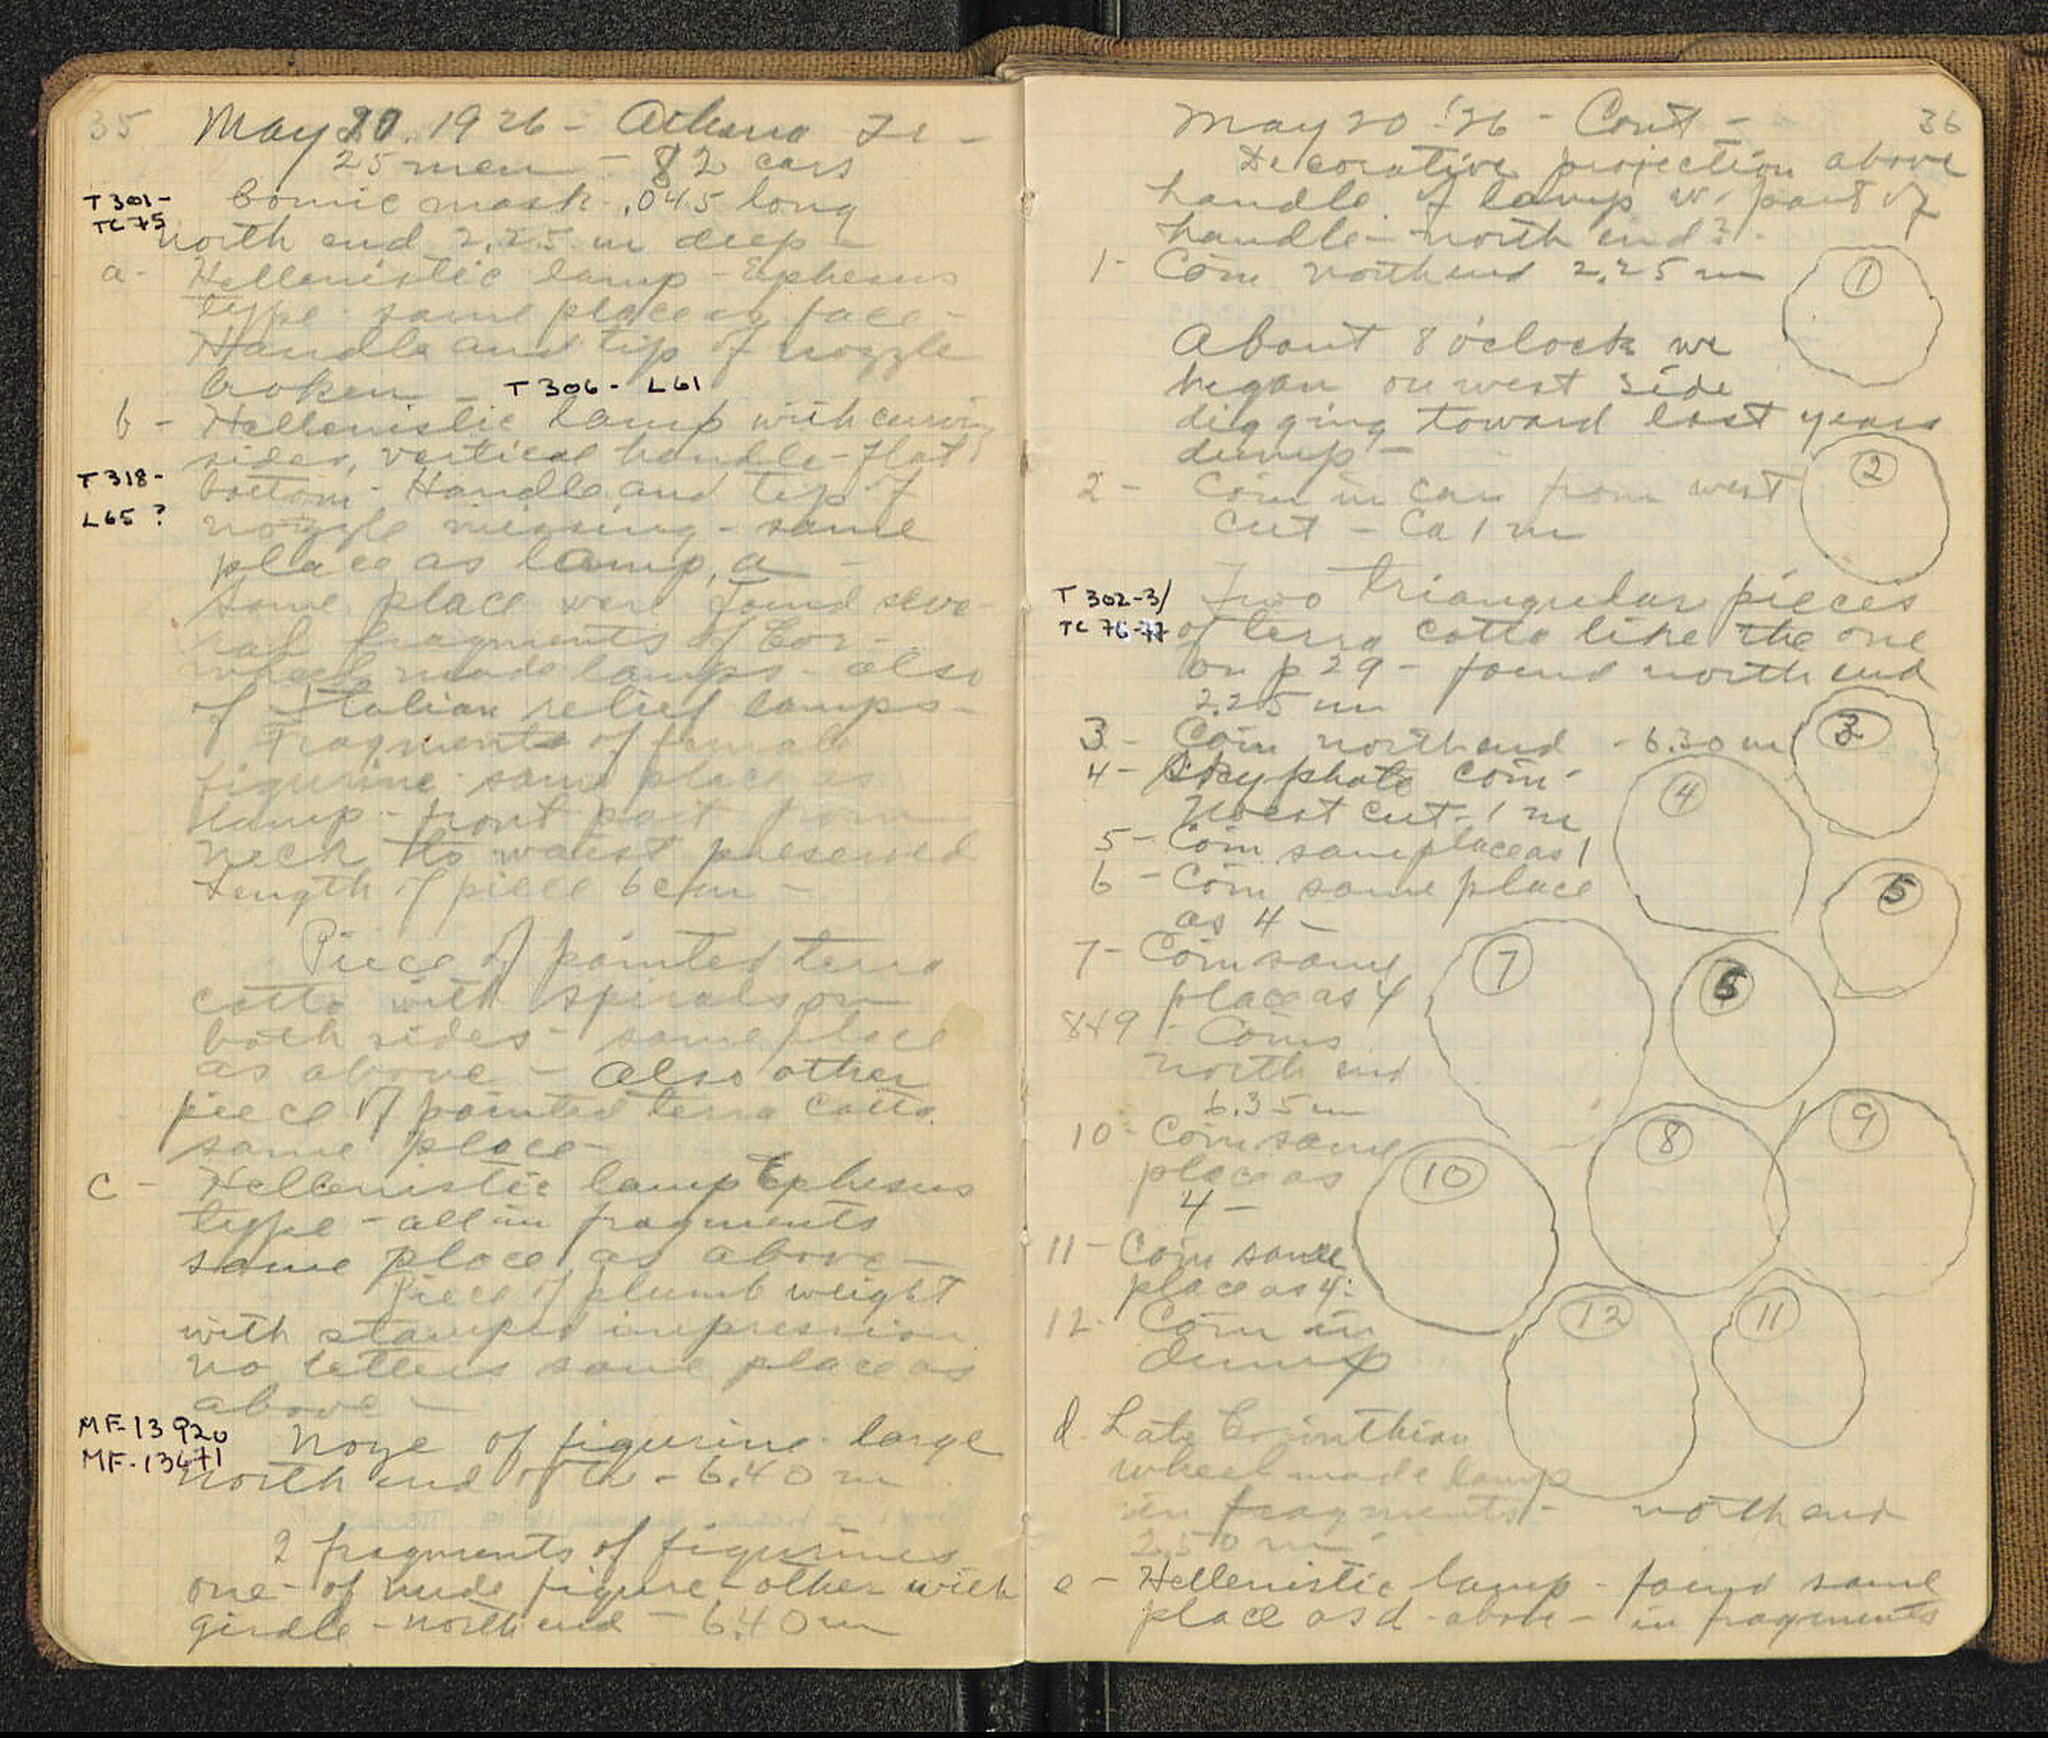 35 May 20. 1926 - Athena Te -
25 men - 82 cars
T 301-
TC 75
Comic mask .045 long
north end 2.25 m deep -
a- Hellenistic lamp - Ephesus
type - same place as face -
Handle and tip of nozzle
broken - T 306 - L61
b - Hellenistic lamp with curving
sides, vertical handle - flat
T 318-
L65 ?
bottom - Handle and tip of
nozzle missing - same
place as lamp, a -
Same place were found seve-
ral fragments of Cor-
wheel made lamps - also
of Italian relief lamps -
Fragments of female
figurine - same place as
lamp - front part from
neck to waist preserved
Length of piece 6 cm -
Piece of painted terra
cotta with spirals on
both sides - same place
as above - also other
piece of painted terra cotta
same place -
c - Hellenistic lamp Ephesus
type - all in fragments
same place as above -
Piece of plumb weight
with stamped impression
no letters same place as
above -
MF-13920
MF-13671
Noze of figurine - large
north end of th - 6.40 m
2 fragments of figurines
one - of nude figure - other with
girdle - north end - 6.40 m
May 20 '26 - Cont - 36
Decorative projection above
handle of lamp w. part of
handle - north end?
1- Coin north end 2.25 m
1
About 8 o'clock we
began on west side
digging toward last years
dump -
2 - Coin in car from west
cut - Ca 1 m
2
T 302-3/
TC 76-77
Two triangular pieces
of terra cotta like the one
on p 29 - found north end
2.25 m
3 - Coin north end - 6.30 m
3
4 - Skyphate coin -
West cut - 1 m
4
5 - Coin same place as 1
6 - Coin same place
as 4 -
5
7 - Coin same
place as 4
7
6
8 & 9 - Coins
north end
6.35 m
8
9
10 - Coin same
place as
4 -
10
11 - Coin same
place as 4.
12. Coin in
dump
12
11
d. Late Corinthian
wheel made lamp
in fragments - north end
2.50 m
e - Hellenistic lamp - found same
place as d - above - in fragments